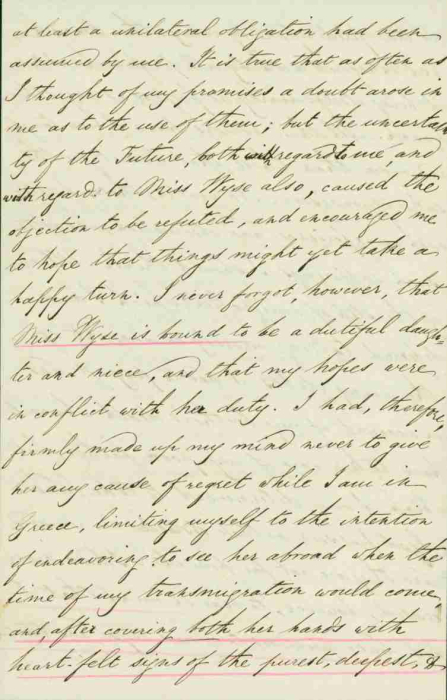 at least a unilateral obligation had been
assumed by me. It is true that as often as
I thought of my promises a doubt arose in
me as to the use of them; but the uncertain
ty of the Future, both with regard to me, and
with regard to Miss Wyse also, caused the
objection to be refuted, and encouraged me
to hope that things might yet take a
happy turn. I never forgot, however, that
Miss Wyse is bound to be a dutiful daugh-
ter and niece, and that my hopes were
in conflict with her duty. I had, therefore,
firmly made up my mind never to give
her any cause of regret while I am in
Greece, limiting myself to the intention
of endeavoring to see her abroad when the
time of my transmigration would come,
and, after covering both her hands with
heart-felt signs of the purest, deepest, &